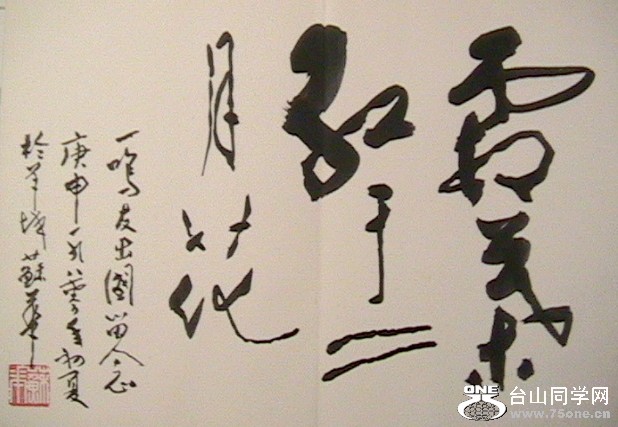 霜葉
红于二
月花
一鸣友出國留念
庚申一九八零年初夏
於羊城蘇華
ONE
台山同学网
www.75one.cn